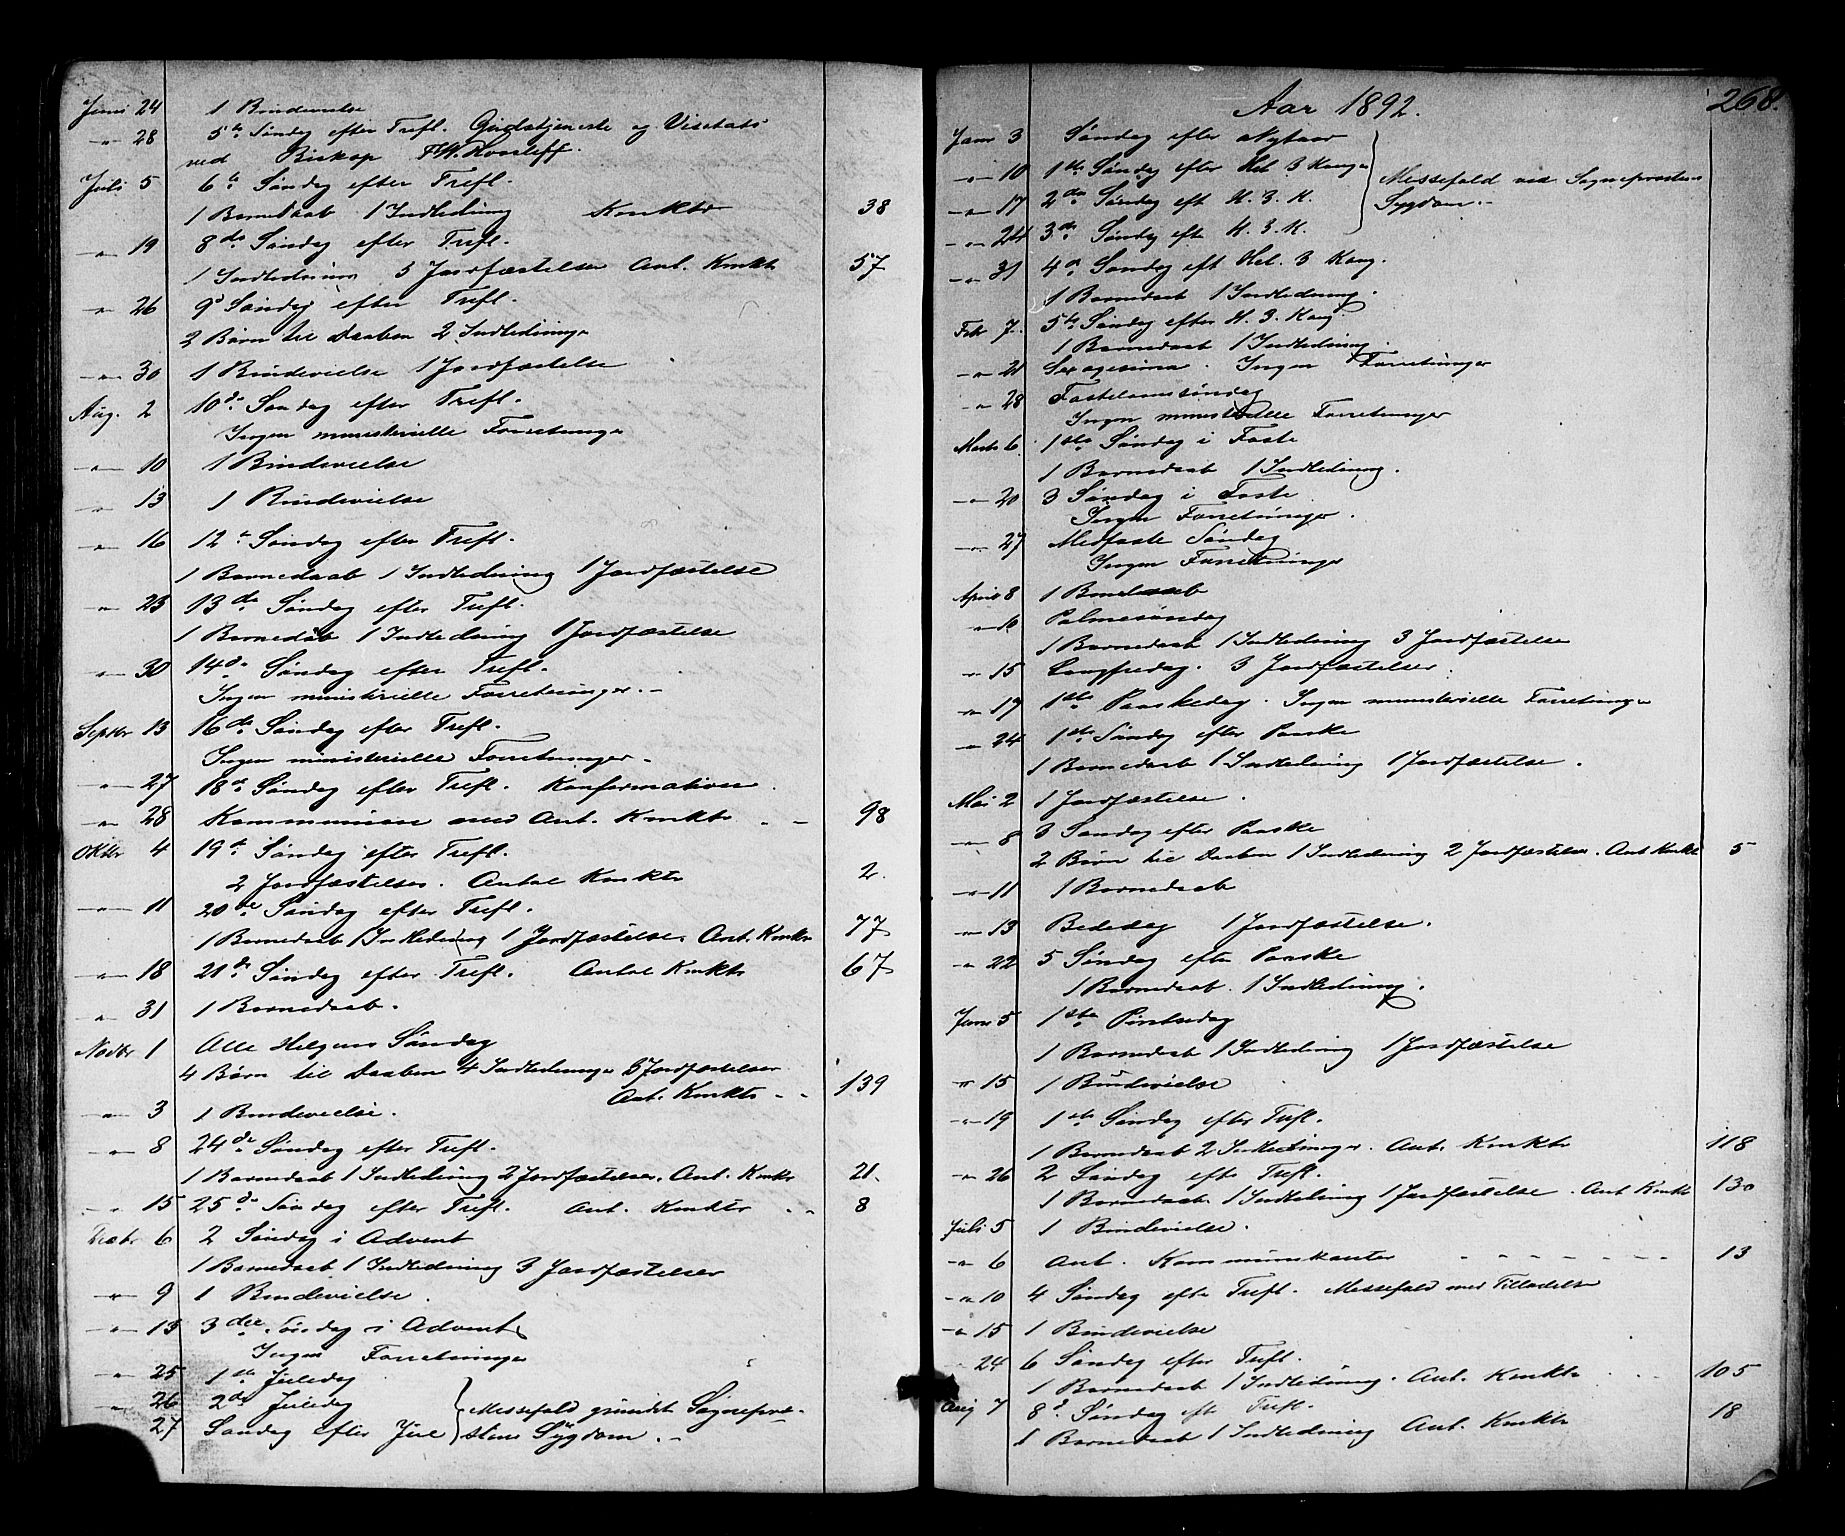 Juni 24 1 Brudevielse
-"- 28 5te Søndag efter Trefl. Gudstjeneste og Visetats
ved Biskop
Juli 5 6te Søndag efter Trefl.
1 Barnedaab 1 Indledning Konktr 38
-"- 19 8de Søndag efter Trefl.
1 Indledning 5 Jordfæstelser Ant. Konktr 57
-"- 26 9d Søndag efter Trefl.
2 Børn til Daaben 2 Indledninger
-"- 30 1 Brudevielse 1 Jordfæstelse
Aug. 2 10de Søndag efter Trefl.
Ingen ministerielle Forretninger
-"- 10 1 Brudevielse
-"- 13 1 Brudevielse
-"- 16 12te Søndag efter Trefl.
1 Barnedaab 1 Indledning 1 Jordfæstelse
-"- 23 13de Søndag efter Trefl.
1 Barnedåb 1 Indledning 1 Jordfæstelse
-"- 30 14de Søndag efter Trefl.
Ingen ministerielle Forretninger.-
Septbr 13 16de Søndag efter Trefl.
Ingen ministerielle Forretninger.
-"- 27 18de Søndag efter Trefl. Konfirmation.
-"- 28 Kommunion med Ant. Konktr - - 98
Oktbr 4 19de Søndag efter Trefl.
2 Jordfæstelser. Antal Konktr 2.
-"- 11 20de Søndag efter Trefl.
1 Barnedaab 1 Indledning 1 Jordfæstelse. Ant. Konktr 77
-"- 18 21de Søndag efter Trefl. Antal Konktr 67
-"- 31 1 Barnedaab.
Novbr 1 Alle Helgens Søndag
4 Børn til Daaben 4 Indledninger 6 Jordfæstelser
Ant. Konktr - - 139
-"- 3 1 Brudevielse.
-"- 8 24de Søndag efter Trefl.
1 Barnedaab 1 Indledning 2 Jordfæstelser. Ant. Konktr 21.
-"- 15 25de Søndag efter Trefl. Ant. Konktr - - 8
Decbr 6 2 Søndag i Advent
1 Barnedaab 1 Indledning 3 Jordfæstelser
-"- 9 1 Brudevielse.
-"- 13 3die Søndag i Advent
Ingen Forretninger
-"- 25 1ste Juledag
-"- 26 2de Juledag
27 Søndag efter Jule
Messefald grundet Sognepre-
stens Sygdom.-
268.
Aar 1892.
Janr 3 Søndag efter Nytaar
-"- 10 1ste Søndag efter Hel. 3 Konger
-"- 17 2den Søndag eft H. 3. K.
Messefald ved Sognepræstens
Sygdom.-
-"- 24 3de Søndag efter H. 3. K.
-"- 31 4de Søndag eft Hel. 3 Kong.
1 Barnedaab 1 Indledning.
Febr 7. 5te Søndag efter H. 3. Kong.
1 Barnedaab 1 Indledning.
-"- 21 Sexagesima. Ingen Forretninger
-"- 28 Fastelavnssøndag
Ingen ministerielle Forretninger
Marts 6 1ste Søndag i Faste
1 Barnedaab 1 Indledning.
-"- 20 3 Søndag i Faste
Ingen Forretninger.
-"- 27 Medfaste Søndag
Ingen Forretninger
April 8 1 Barnedaab
-"- 10 Palmesøndag
1 Barnedaab 1 Indledning 3 Jordfæstelse
-"- 15 Langfredag. 3 Jordfæstelser.
-"- 19 1ste Paaskedag. Ingen ministerielle Forretninger
-"- 24 1ste Søndag efter Paaske
1 Barnedaab 1 Indledning 1 Jordfæstelse.
Mai 2 1 Jordfæstelse.
-"- 8 3 Søndag efter Paaske
2 Børn til Daaben 1 Indledning 2 Jordfæstelse. Ant Konktr 5
-"- 11 1 Barnedaab
-"- 13 Bededag 1 Jordfæstelse.
-"- 22 5 Søndag efter Paaske
1 Barnedaab. 1 Indledning.
Juni 5 1ste Pintsedag
1 Barnedaab 1 Indledning 1 Jordfæstelse
-"- 15 1 Brudevielse
-"- 19 1ste Søndag efter Trefl.
1 Barnedaab 2 Indledninger. Ant. Konktr 118
-"- 26 2 Søndag efte Trefl.
1 Barnedaab 1 Indledning 1 Jordfæstelse. Ant Konktr 130
Juli 5 1 Brudevielse.
-"- 6 Ant. Kommunikanter - - - - - - - 13
-"- 10 4 Søndag efte Trefl. Messefald med Tilladelse
-"- 15 1 Brudevielse
24 6 Søndag efter Trefl.
1 Barnedaab 1 Indledning. Ant. Konktr - - - 105
Aug 7 8d Søndag eft Trefl.
1 Barnedaab 1 Indledning Ant. Konktr 18